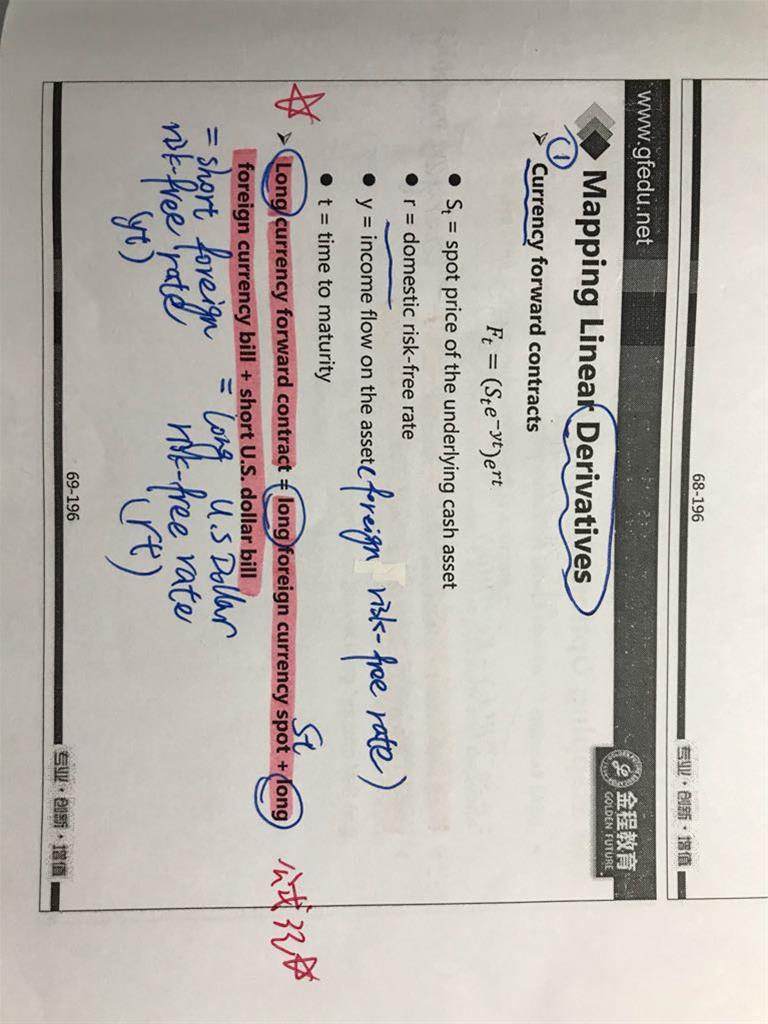 68-196
专业·创新·增值
www.gfedu.net
金程教育
GOLDEN FUTURE
Mapping Linear Derivatives
① Currency forward contracts
Fₜ = (Sₜe⁻ʸᵗ)eʳᵗ
● Sₜ = spot price of the underlying cash asset
● r = domestic risk-free rate
● y = income flow on the asset (foreign risk-free rate)
● t = time to maturity
St
➢ Long currency forward contract = long foreign currency spot + long
foreign currency bill + short U.S. dollar bill
公式 33
= short foreign
risk-free rate
(yt)
= long U.S Dollar
risk-free rate
(rt)
69-196
专业·创新·增值